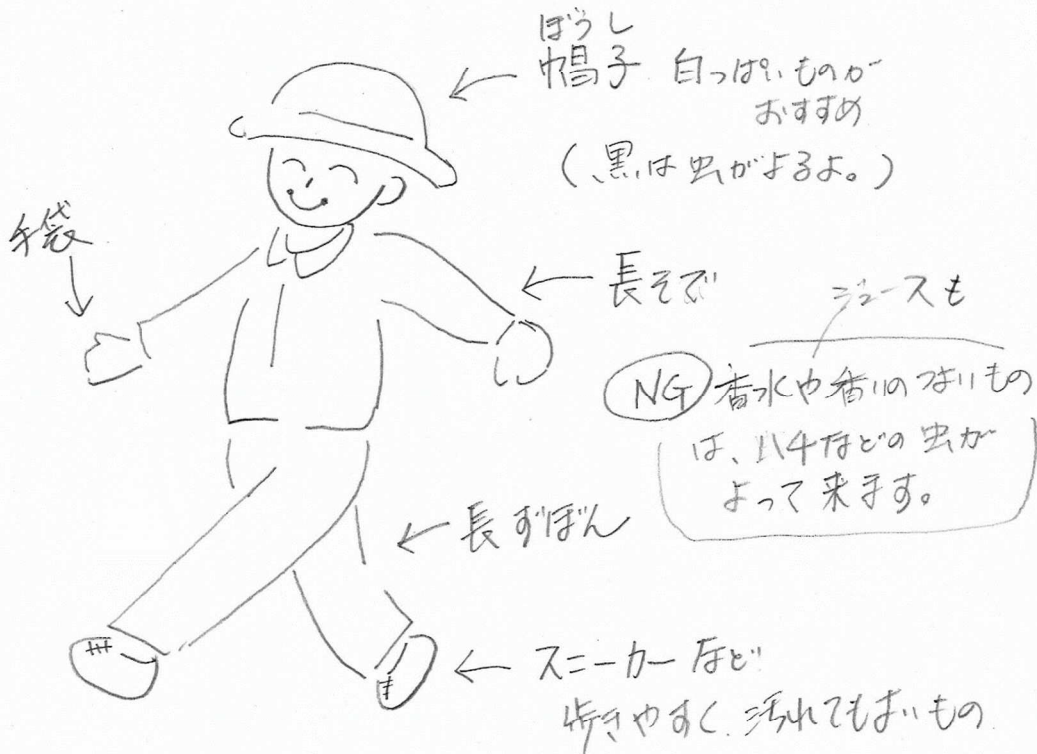 ぼうし
帽子 白っぽいものが
おすすめ
(黒は虫がよるよ。)
手袋
長そで
ジュースも
NG 香水や香りのつよいもの
は、ハチなどの虫が
よって来ます。
長ずぼん
スニーカーなど
歩きやすく汚れてもよいもの